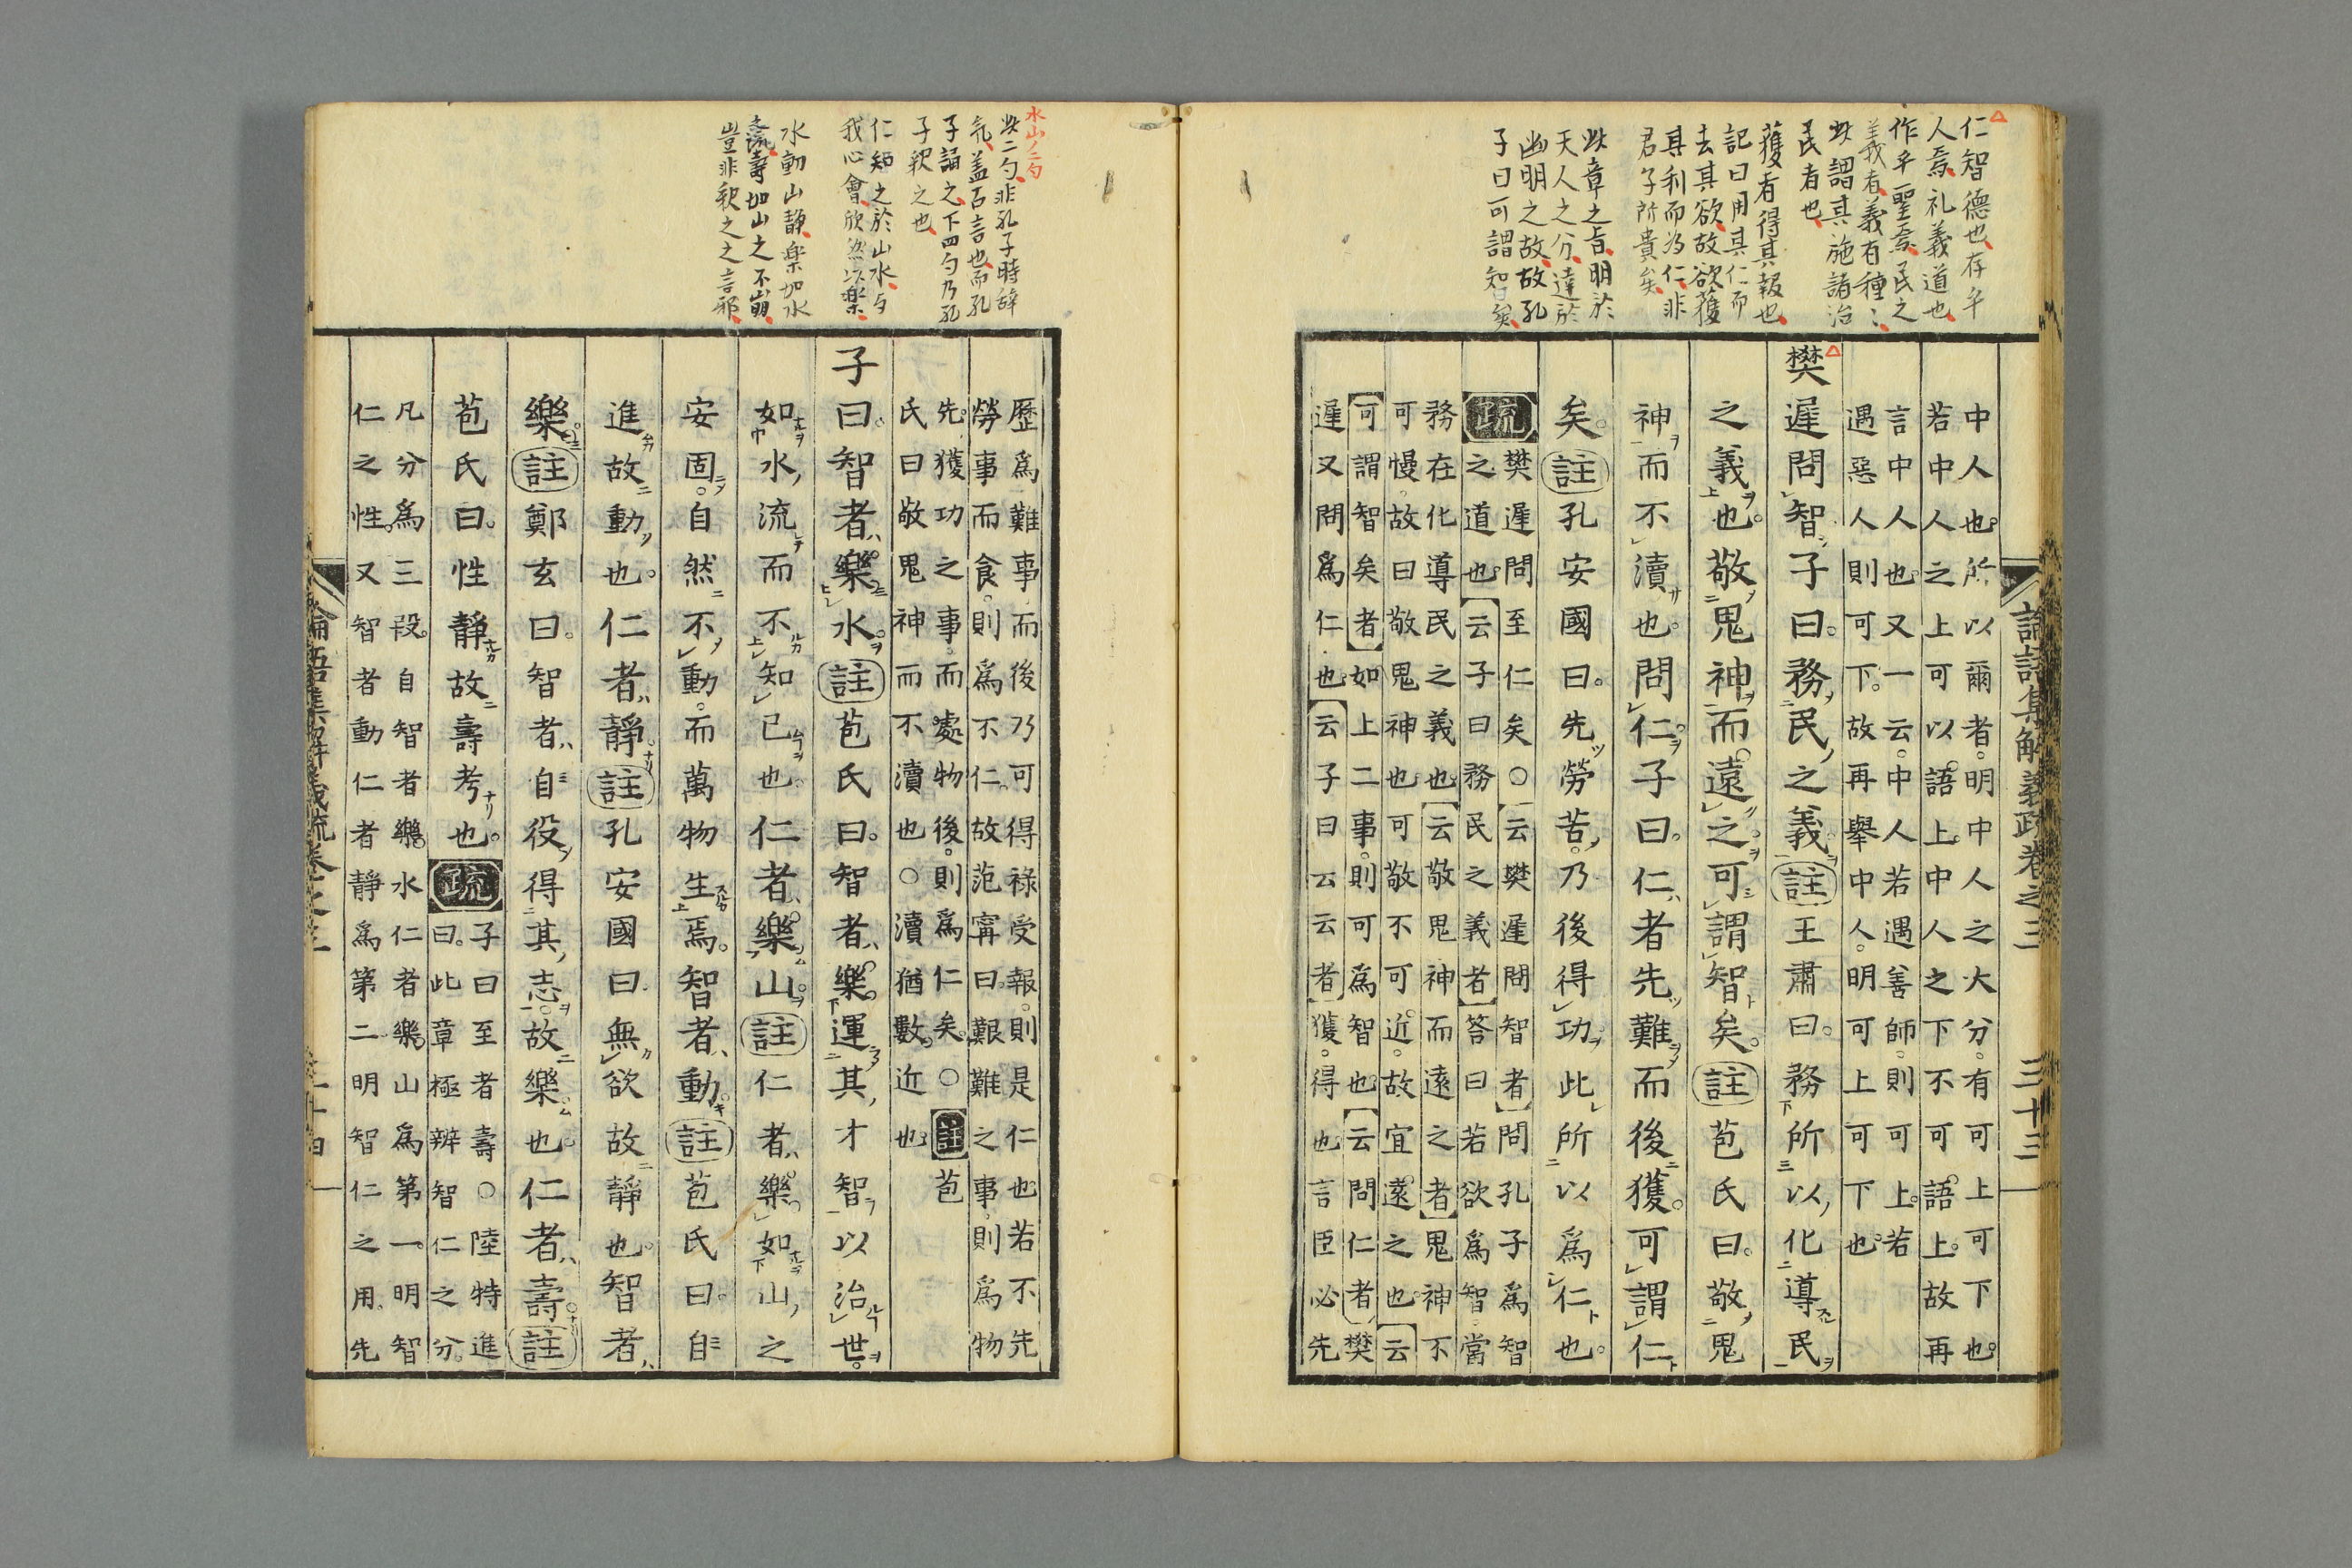 仁智德也存乎
人焉礼義道也
作乎聖焉民之
義者義有種〻
此謂其施諸治
民者也
獲者得其報也
記曰用其仁而
去其欲故欲獲
其利而為仁非
君子所貴矣
此章之旨明於
天人之分達於
幽明之故故孔
子曰可謂知矣
論語集解義疏卷之三 三十三
中人也所以爾者明中人之大分有可上可下也
若中人之上可以語上中人之下不可語上故再
言中人也又一云中人若遇善師則可上若
遇惡人則可下故再舉中人明可上可下也
樊遲問智子曰務民之義註王肅曰務所以化導民
之義也敬鬼神而遠之可謂智矣註苞氏曰敬鬼
神而不瀆也問仁子曰仁者先難而後獲可謂仁
矣註孔安國曰先勞苦乃後得功此所以為仁也
疏樊遲問至仁矣○云樊遲問智者問孔子為智
之道也云子曰務民之義者答曰若欲為智當
務在化導民之義也云敬鬼神而遠之者鬼神不
可慢故曰敬鬼神也可敬不可近故宜遠之也云
可謂智矣者如上二事則可為智也云問仁者樊
遲又問為仁也云子曰云云者獲得也言臣必先
水山ノ二句
此二句非孔子時辭
氣蓋古言也而孔
子誦之下四句乃孔
子釈之也
仁知之於山水与
我心會欣然以楽
水動山靜楽如水
之流壽如山之不崩
豈非釈之之言邪
歷為難事而後乃可得祿受報則是仁也若不先
勞事而食則為不仁故范甯曰艱難之事則為物
先獲功之事而處物後則為仁矣○註苞
氏曰敬鬼神而不瀆也○瀆猶數近也
子曰智者樂水註苞氏曰智者樂運其才智以治世
如水流而不知已也仁者樂山註仁者樂如山之
安固自然不動而萬物生焉智者動註苞氏曰自
進故動也仁者靜註孔安國曰無欲故靜也智者
樂註鄭玄曰智者自役得其志故樂也仁者壽註
苞氏曰性靜故壽考也疏子曰至者壽○陸特進
曰此章極辨智仁之分
凡分為三段自智者樂水仁者樂山為第一明智
仁之性又智者動仁者靜為第二明智仁之用先
論語集解義疏卷之三 三十四